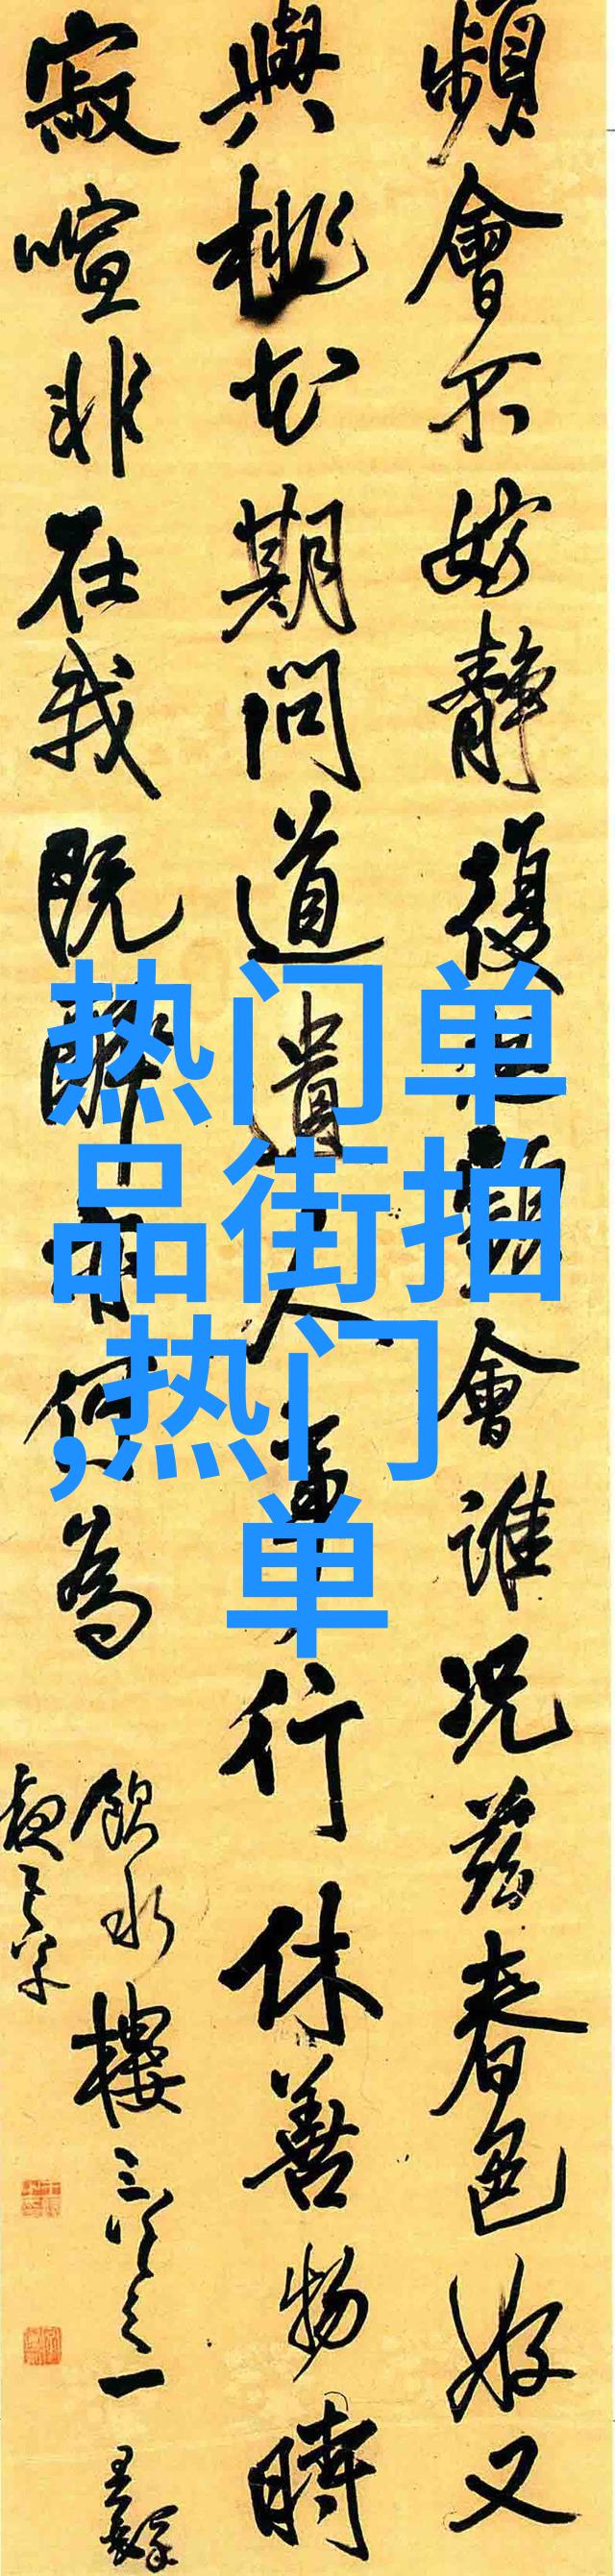 頻會不妨靜復
會誰況茲春色好又
與桃花期問道遺人
行休善物時
寂喧非在我既醉
何為
飲水樓三首之一
熱门单
品街拍
,热门
单